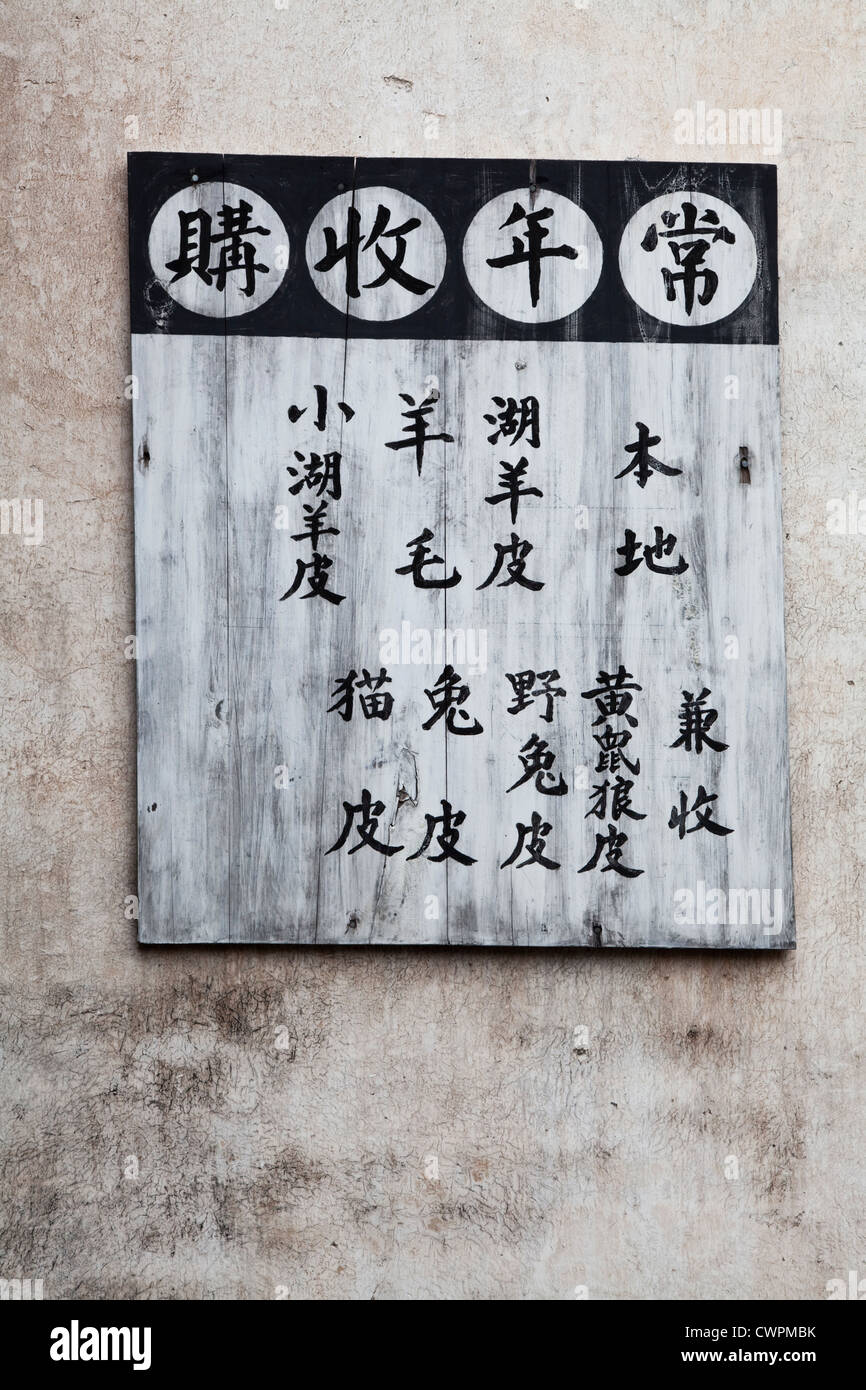 常年收購
本地
湖羊皮
羊毛
小湖羊皮
兼收
黃鼠狼皮
野兔皮
兔皮
猫皮
alamy
Image ID: CWPMBK
www.alamy.com